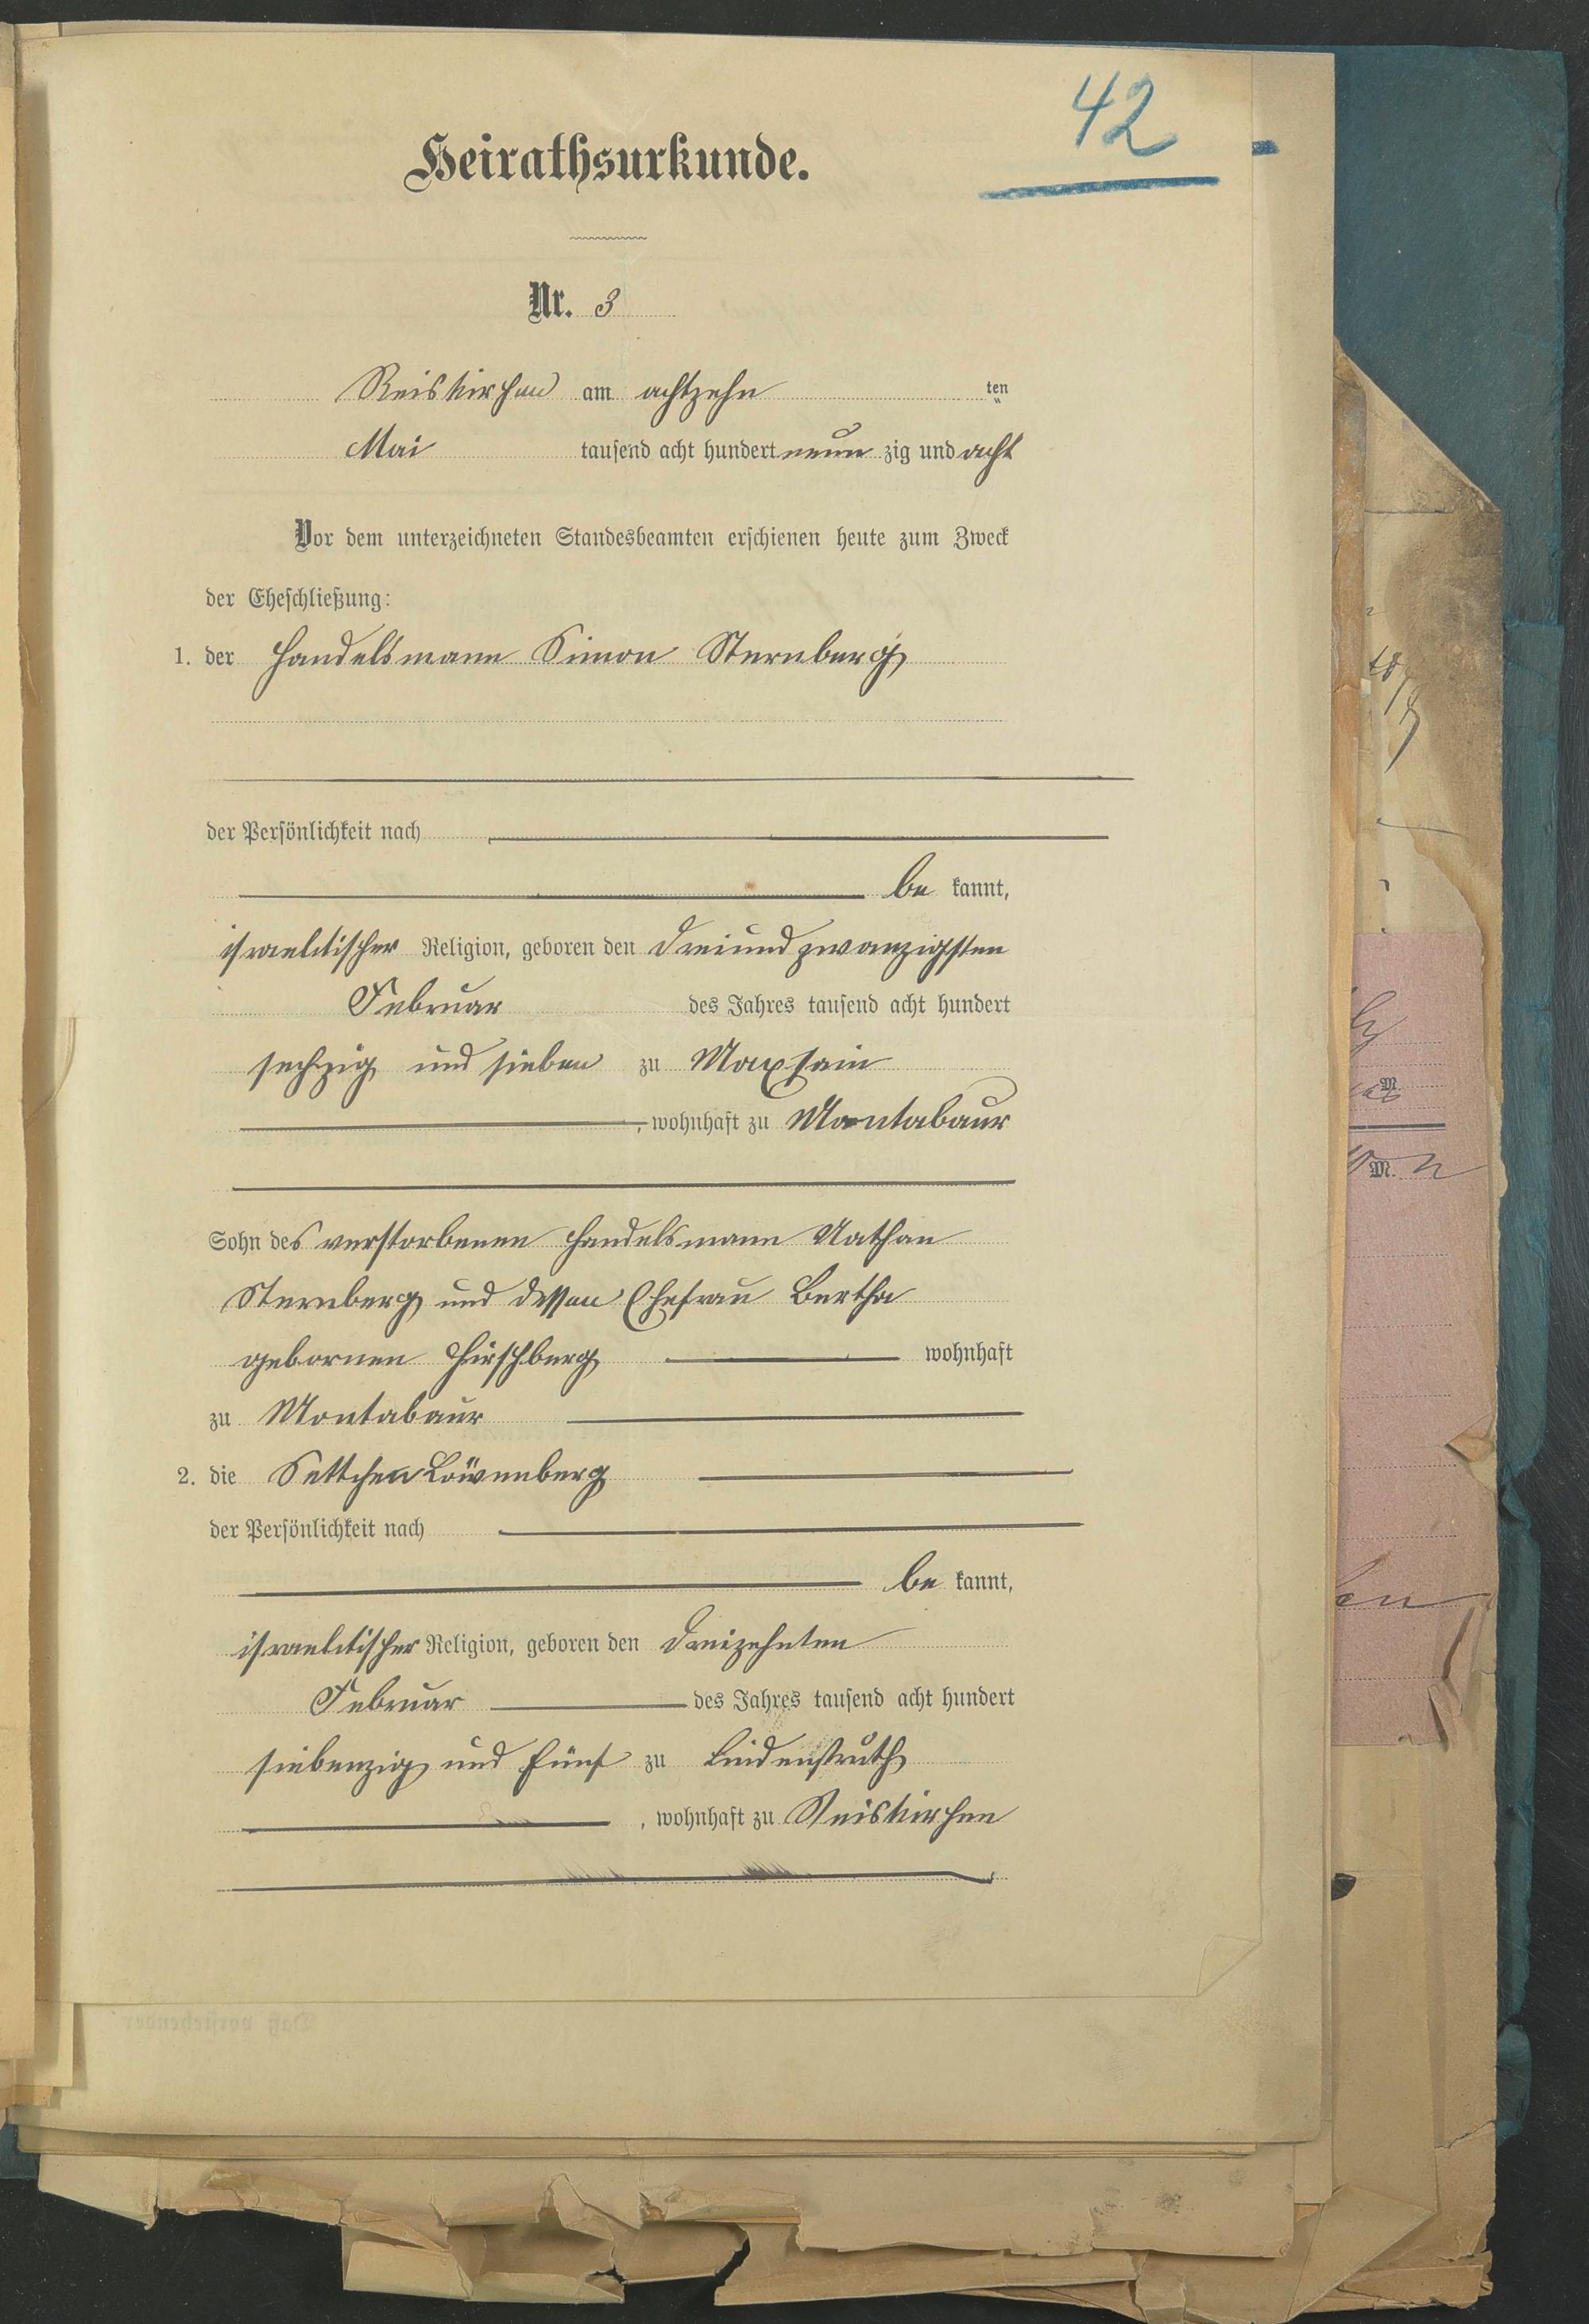 42
Heirathsurkunde.
Nr. 3
Reiskirchen am achtzehn ten
Mai tausend acht hundert neun zig und acht
Vor dem unterzeichneten Standesbeamten erschienen heute zum Zweck
der Eheschließung:
1. der Handelsmann Simon Sternberg
der Persönlichkeit nach
be kannt,
israelitischer Religion, geboren den dreiundzwanzigsten
Februar des Jahres tausend acht hundert
sechzig und sieben zu Maxsain
, wohnhaft zu Montabaur
Sohn des verstorbenen Handelsmann Nathan
Sternberg und dessen Ehefrau Bertha
gebornen Hirschberg wohnhaft
zu Montabaur
2. die Settchen Löwenberg
der Persönlichkeit nach
be kannt,
israelitischer Religion, geboren den dreizehnten
Februar des Jahres tausend acht hundert
siebenzig und fünf zu Lindenstruth
, wohnhaft zu Reiskirchen